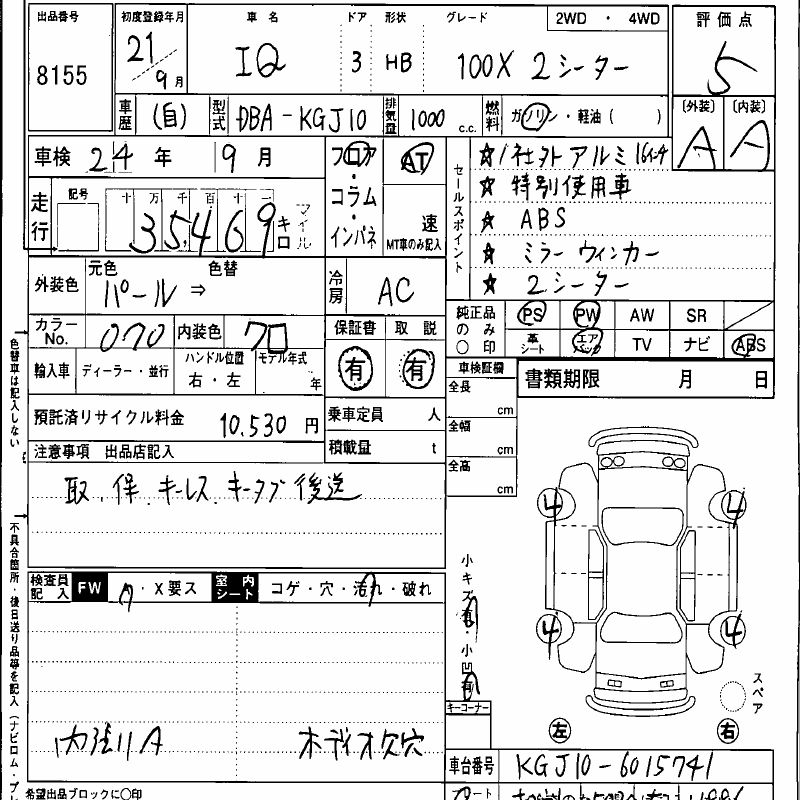 出品番号 初度登録年月 車名 ドア 形状 グレード 2WD ・ 4WD 評価点
8155 21/9月 IQ 3 HB 100X 2シーター 5
車歴 (自) 型式 DBA-KGJ10 排気量 1000 c.c. 燃料 ガソリン・軽油( ) 〔外装〕 〔内装〕
A A
車検 24年 9月 フロア・コラム・インパネ AT 速 MT車のみ記入
セールスポイント
☆ 社外アルミ 16インチ
☆ 特別使用車
☆ ABS
☆ ミラーウィンカー
☆ 2シーター
走行 記号 十万千百十一 35,469 キロ マイル
外装色 元色 色替 パール ⇒ 冷房 AC
純正品のみ〇印 PS PW AW SR
革シート エアバック TV ナビ ABS
カラーNo. 070 内装色 クロ 保証書 取説
有 有
輸入車 ディーラー・並行 ハンドル位置 右・左 モデル年式 年
車検証欄 書類期限 月 日
全長 cm
全幅 cm
全高 cm
預託済リサイクル料金 10.530 円 乗車定員 人
積載量 t
注意事項 出品店記入
取、保、キーレス、キータブ後送
検査員記入 FW ・X要ス 室内シート コゲ・穴・汚れ・破れ
内張りA オーディオ欠穴
小キズ有・小凹有
キーコーナー
4 4
4 4
スペア
左 右
車台番号 KGJ10-6015741
色替車は記入しない
不具合箇所・後日送り品等を記入(ナビロム・
希望出品ブロックに〇印